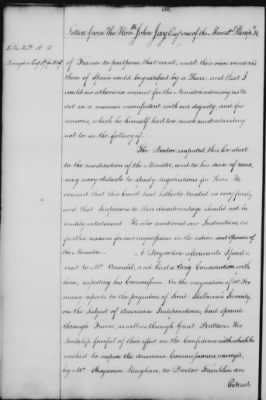 Letter from The Honble John Jay Esqr one of the Minist. Plenip. &c
of France to postpone that event, until their views and
them of Spain could be gratified by a Peace, and that I
could no otherwise account for the Minister's advising us to
act in a manner inconsistent with our dignity, and for
reasons, which he himself had too much understanding
not to see the fallacy of.
The Doctor imputed this conduct
to the moderation of the Minister, and to his desire of remo-
ving every obstacle to speedy negotiations for Peace. He
observed that this Court had hitherto treated us very fairly,
and that suspicions to their disadvantage should not be
readily entertained. He also mentioned our Instructions, as
further reasons for our acquiescence in the advice and opinion of
the Minister. A Day or two afterwards I paid a
visit to Mr Oswald, and had a long Conversation with
him, respecting his Commission. On the resignation of Mr Fox
many reports to the prejudice of Lord Shelburne's Sincerity
on the subject of American Independence, had spread
through France, as well as through Great Britain. His
Lordship fearful of their effect on the confidence with which he
wished to inspire the American Commissioners, conveyed
by Mr Benjamin Vaughan, to Doctor Franklin an
Extract